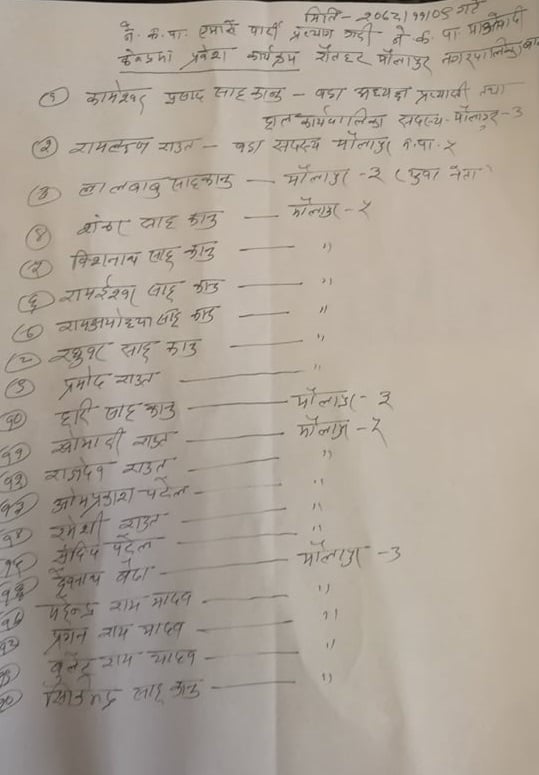 मिति- २०७८।११।०९ गते
ने. क. पा. एमाले पार्टी परित्याग गरी ने. क. पा माओवादी
केन्द्रमा प्रवेश कार्यक्रम रौतहट मौलापुर नगरपालिका
(१) कामेश्वर प्रसाद साह कानु - वडा अध्यक्ष प्रत्यासी तथा
हाल कार्यपालिका सदस्य- मौलापुर - ३
(२) राउत - वडा सदस्य मौलापुर न.पा. २
(३) लालबाबु साह कानु - मौलापुर - २ (युवा नेता)
(४) शंकर साह कानु - मौलापुर - २
(५) विश्वनाथ साह कानु - "
(६) रामईश्वर साह कानु - "
(७) रामअयोध्या साह कानु - "
(८) रघुवर साह कानु - "
(९) प्रमोद राउत - "
१० हरि साह कानु - मौलापुर - ३
११ राउत - मौलापुर - २
राजदेव राउत - "
ओमप्रकाश पटेल - "
१४ रमेशी राउत - "
१५ संदिप पटेल - "
बैठा - मौलापुर - ३
महेन्द्र राय यादव - "
राय यादव - "
राय यादव - "
२० साह कानु - "